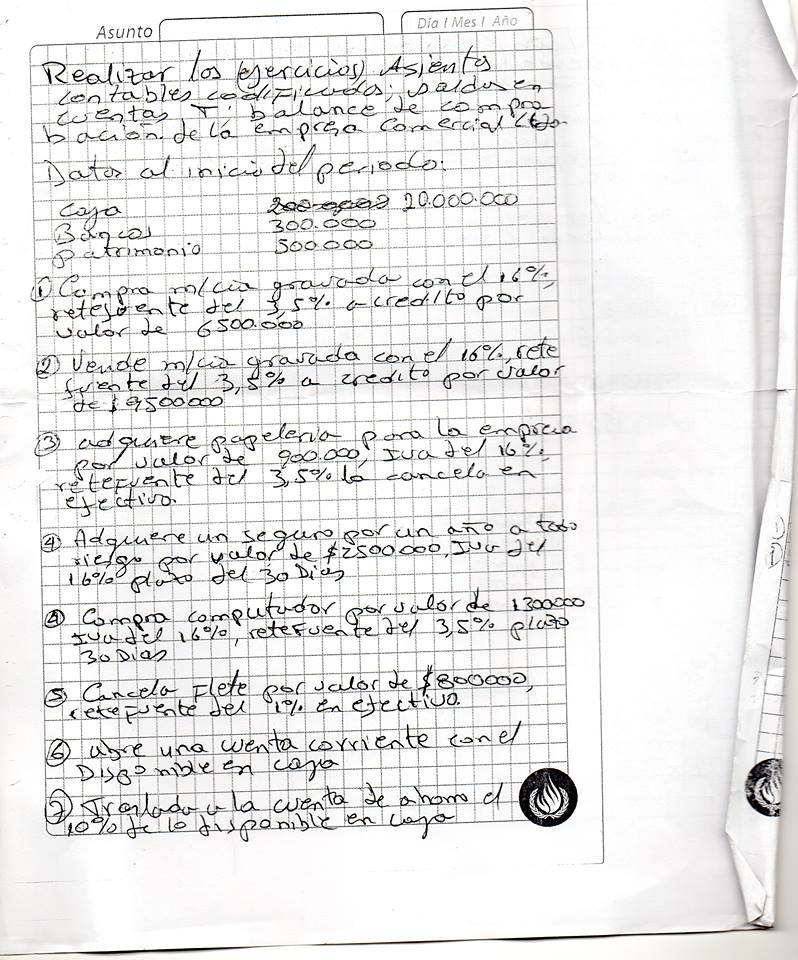 Asunto
Día / Mes / Año
Realizar los ejercicios Asientos
contables codificados; saldos en
cuentas T; balance de compro
bación de la empresa Comercial Ltda.
Datos al inicio del periodo:
Caja 20.000.000
Bancos 300.000
patrimonio 500.000
① Compra m/cia gravada con el 16%,
retefuente del 3,5% a credito por
valor de 6500.000
② Vende m/cia gravada con el 16%, rete
fuente del 3,5% a credito por valor
de $9500000
③ adquiere papeleria para la empresa
por valor de 900.000, Iva del 16%,
retefuente del 3,5% la cancela en
efectivo.
④ Adquiere un seguro por un año a todo
riesgo por valor de $2500000, Iva del
16% plazo del 30 Dias
④ Compra computador por valor de 1300000
Iva del 16%, retefuente del 3,5% plazo
30 Dias
⑤ Cancela Flete por valor de $800000,
retefuente del 1% en efectivo.
⑥ abre una cuenta corriente con el
Disponible en caja
⑦ Traslada a la cuenta de ahorro el
10% de lo disponible en caja